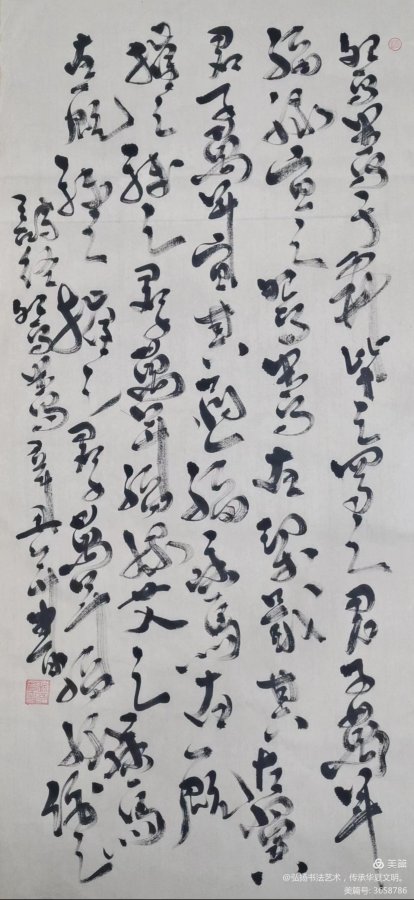 鴛鴦于飛畢之羅之君子萬年
福祿宜之鴛鴦在梁戢其左翼
君子萬年宜其遐福乘馬在厩
摧之秣之君子萬年福祿艾之乘馬
在厩秣之摧之君子萬年福祿綏之
詩經鴛鴦辛丑年
美篇
@弘扬书法艺术,传承华夏文明。
美篇号: 3658786